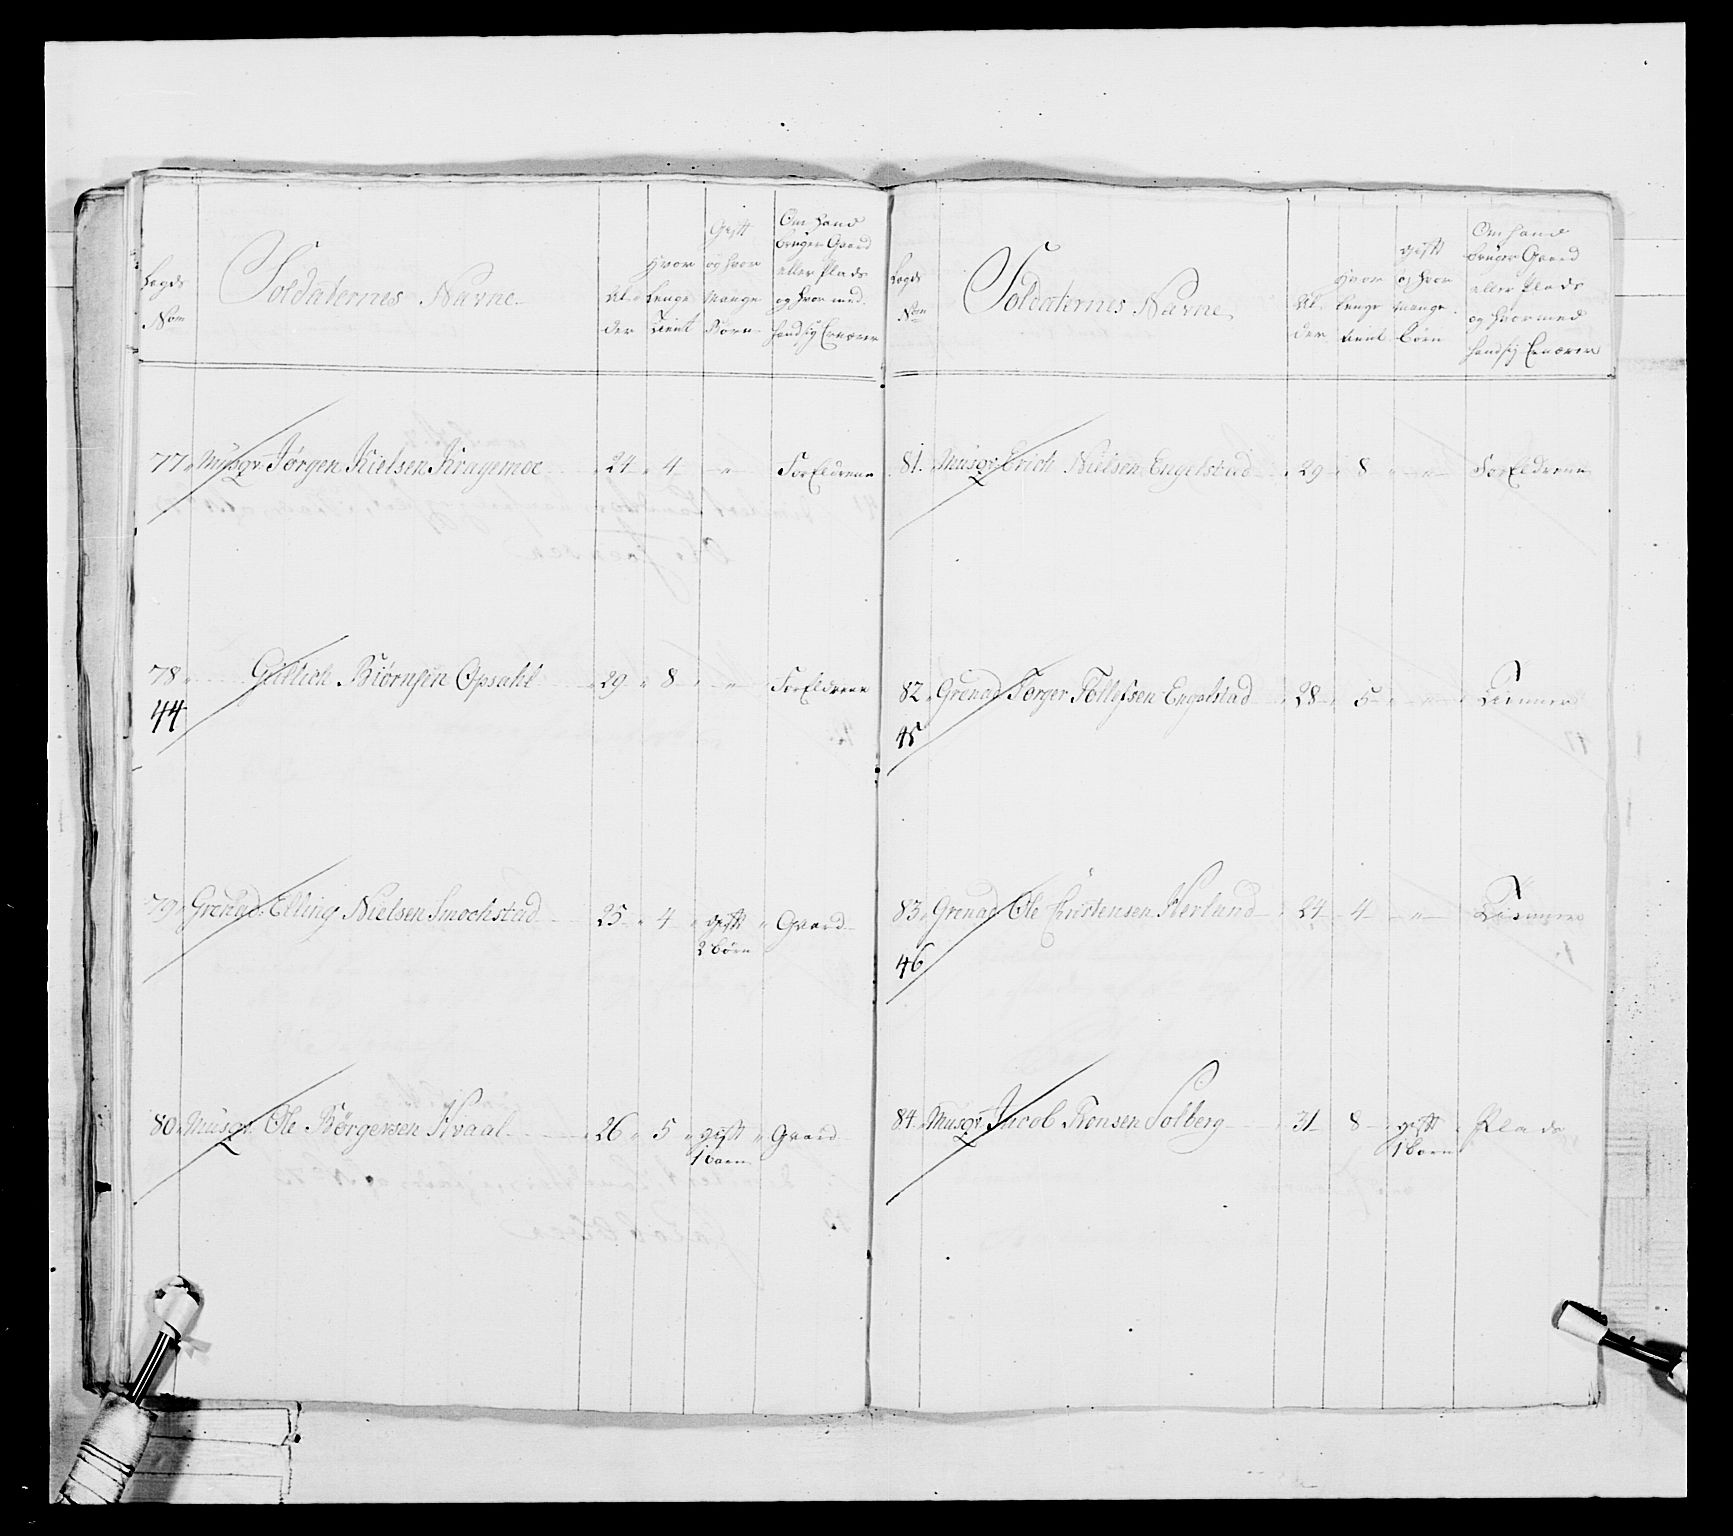 Lægds Nom
Soldaternes Navne
Alder
Hvor Lenge Tient
Gift og hvor Mange Børn
Om Hand bruger Gaard eller Plads og hvor med hand sig Ernærer
77 Musqr Jørgen Kielsen Kragemoe 24 4 " ForEldrene
78 Gullich Biørnsen Opsahl 29 8 " ForEldrene
44
79 Grenad. Elling Nielsen Smechstad 25 4 gift Gaard
2 børn
80 Musqr. Ole Børgersen Hvaal 26 5 gift Gaard
1 barn
Lægds Nom
Soldaternes Navne
Alder
Hvor Lenge tient
gift og hvor mange børn
Om hand bruger Gaard eller Plads og hvor med hand sig Ernærer
81 Musqr Erich Nielsen Engelstad 29 8 " ForEldrene
82 Grenad Torger Tollefsen Engelstad 28 5 " Tienner
45
83 Grenad Ole Christensen Herlund 24 4 " Tienner
46
84 Musqr Jacob Ronsen Solberg 31 8 gift Plads
1 barn